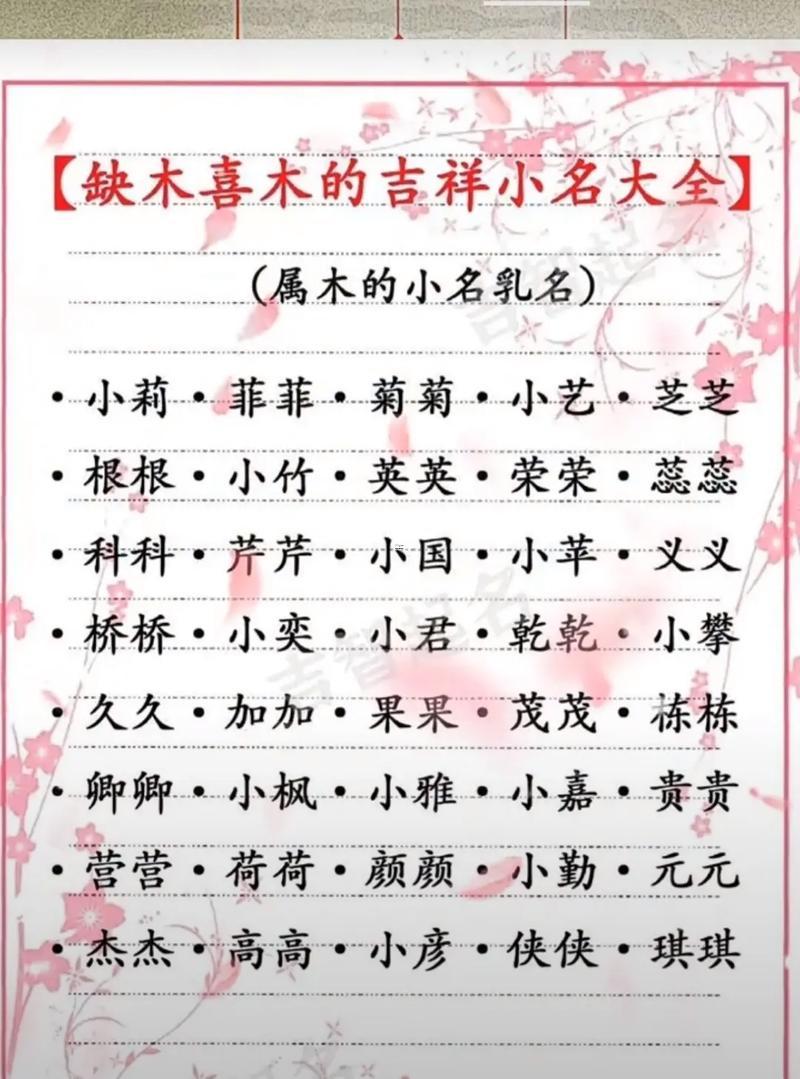 【缺木喜木的吉祥小名大全】
(属木的小名乳名)
·小莉·菲菲·菊菊·小艺·芝芝
·根根·小竹·英英·荣荣·蕊蕊
·科科·芹芹·小国·小苹·义义
·桥桥·小奕·小君·乾乾·小攀
·久久·加加·果果·茂茂·栋栋
·卿卿·小枫·小雅·小嘉·贵贵
·营营·荷荷·颜颜·小勤·元元
·杰杰·高高·小彦·侠侠·琪琪
吉智起名
吉智起名